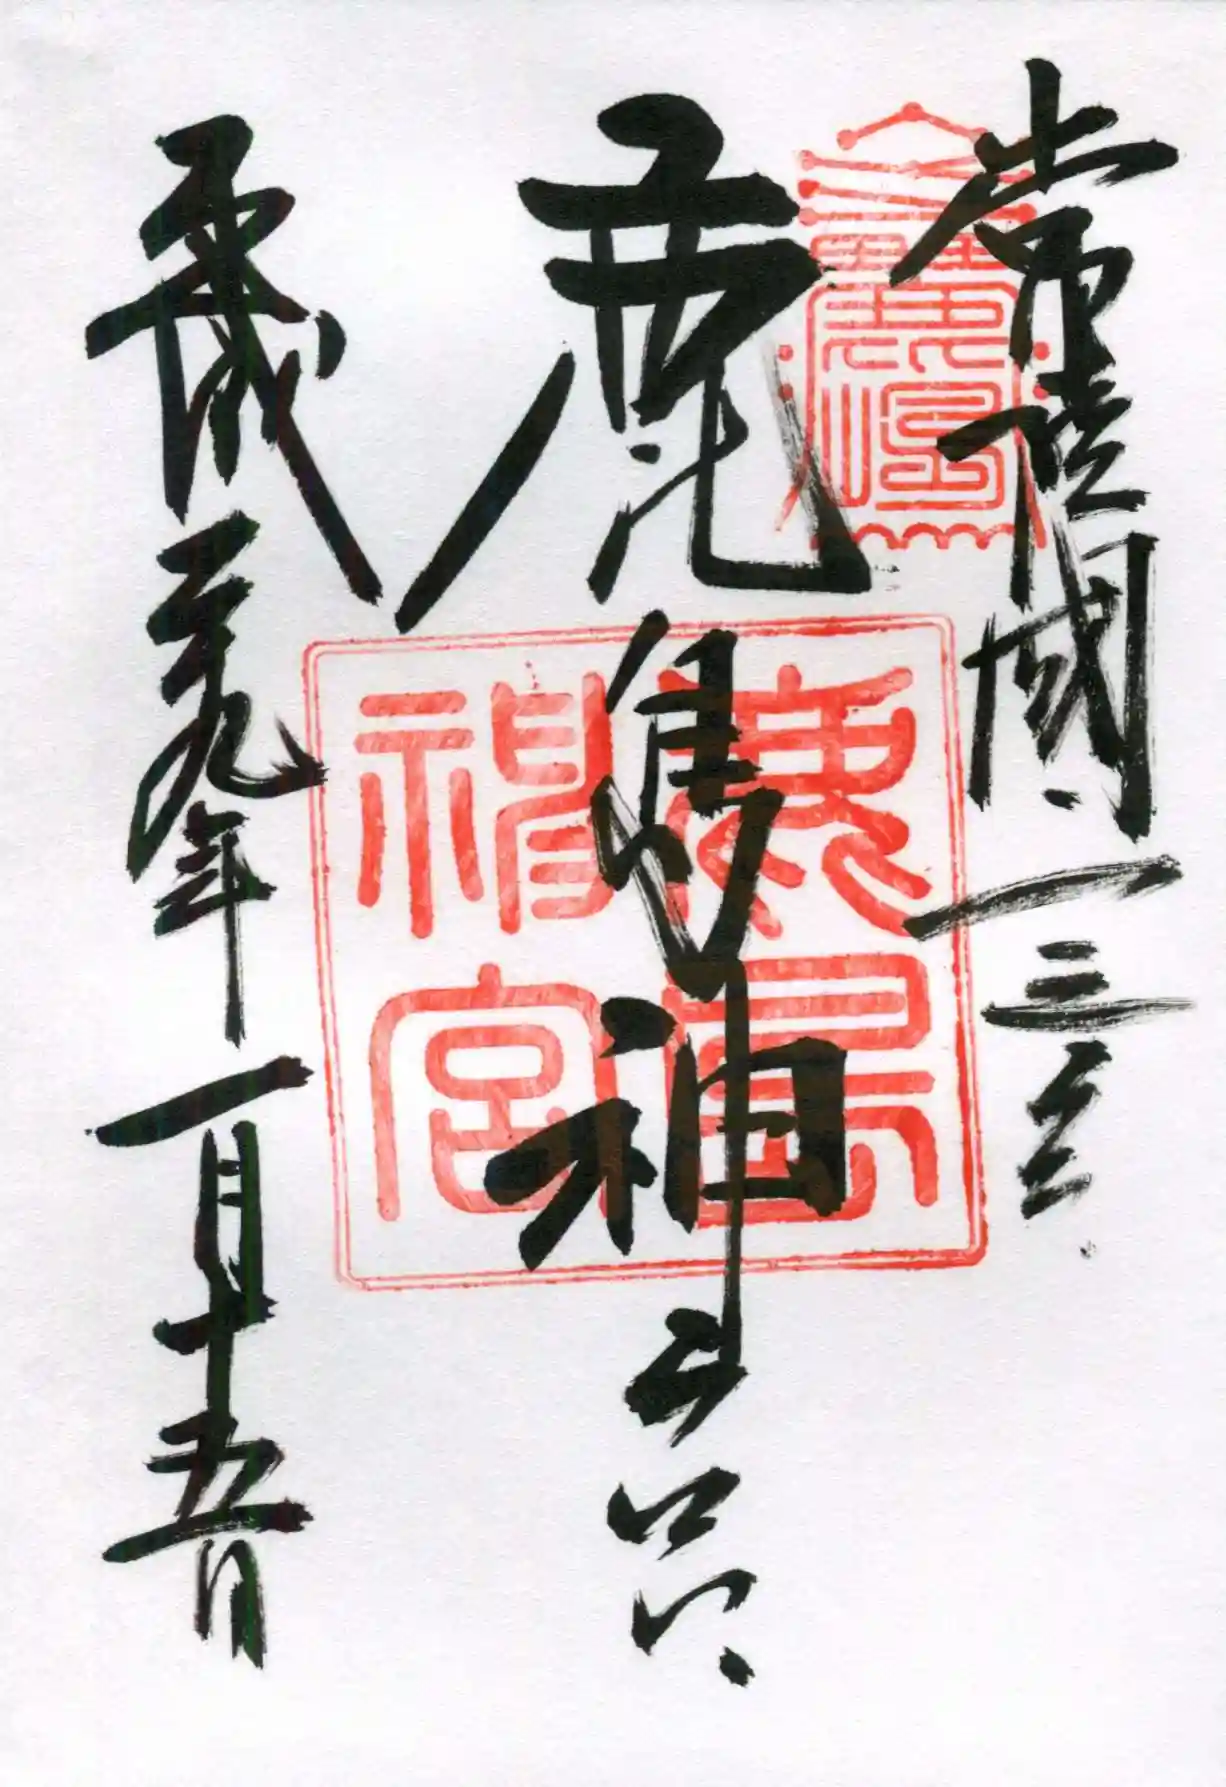 常陸國一之宮
鹿島神宮
平成二十九年一月十五日
鹿島神宮